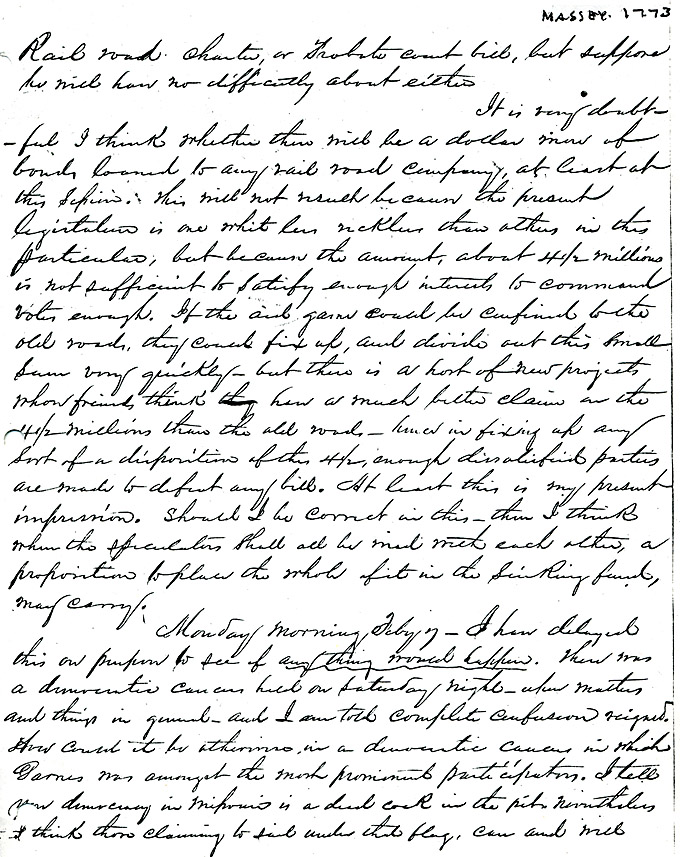 MASSEY. 1773
Rail road charter, or Probate court bill, but suppose
he will have no difficulty about either
It is very doubt-
-ful I think whether there will be a dollar more of
bonds loaned to any rail road company, at least at
this Session. this will not result because the present
legislature is one whit less reckless than others in this
particular; but because the amount, about 4 1/2 millions
is not sufficient to satisfy enough interests to command
votes enough. If the aid game could be confined to the
old roads, they could fix up, and divide out this small
sum very quickly - but there is a host of new projects
whose friends think they have a much better claim on the
4 1/2 millions than the old roads - hence in fixing up any
sort of a disposition of this 4 1/2, enough dissatisfied parties
are made to defeat any bill. At least this is my present
impression. Should I be correct in this - then I think
when the speculators shall all be mad with each other, a
proposition to place the whole of it in the Sinking fund,
may carry.
Monday morning Feby - I have delayed
this on purpose to see if any thing would happen. There was
a democratic caucus held on Saturday night - when matters
and things in general - and I am told complete confusion reigned.
How could it be otherwise in a democratic caucus in which
Barnes was amongst the most prominent participators. I tell
you democracy in Missouri is a dead cock in the pit. Nevertheless
I think those claiming to sail under that flag, can and will